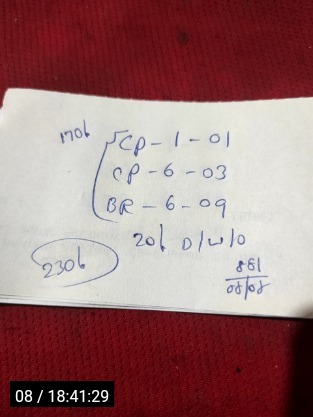 170b
CP - 1 - 01
CP - 6 - 03
BR - 6 - 09
20b D/W/O
230b
881
08/08
08 / 18:41:29